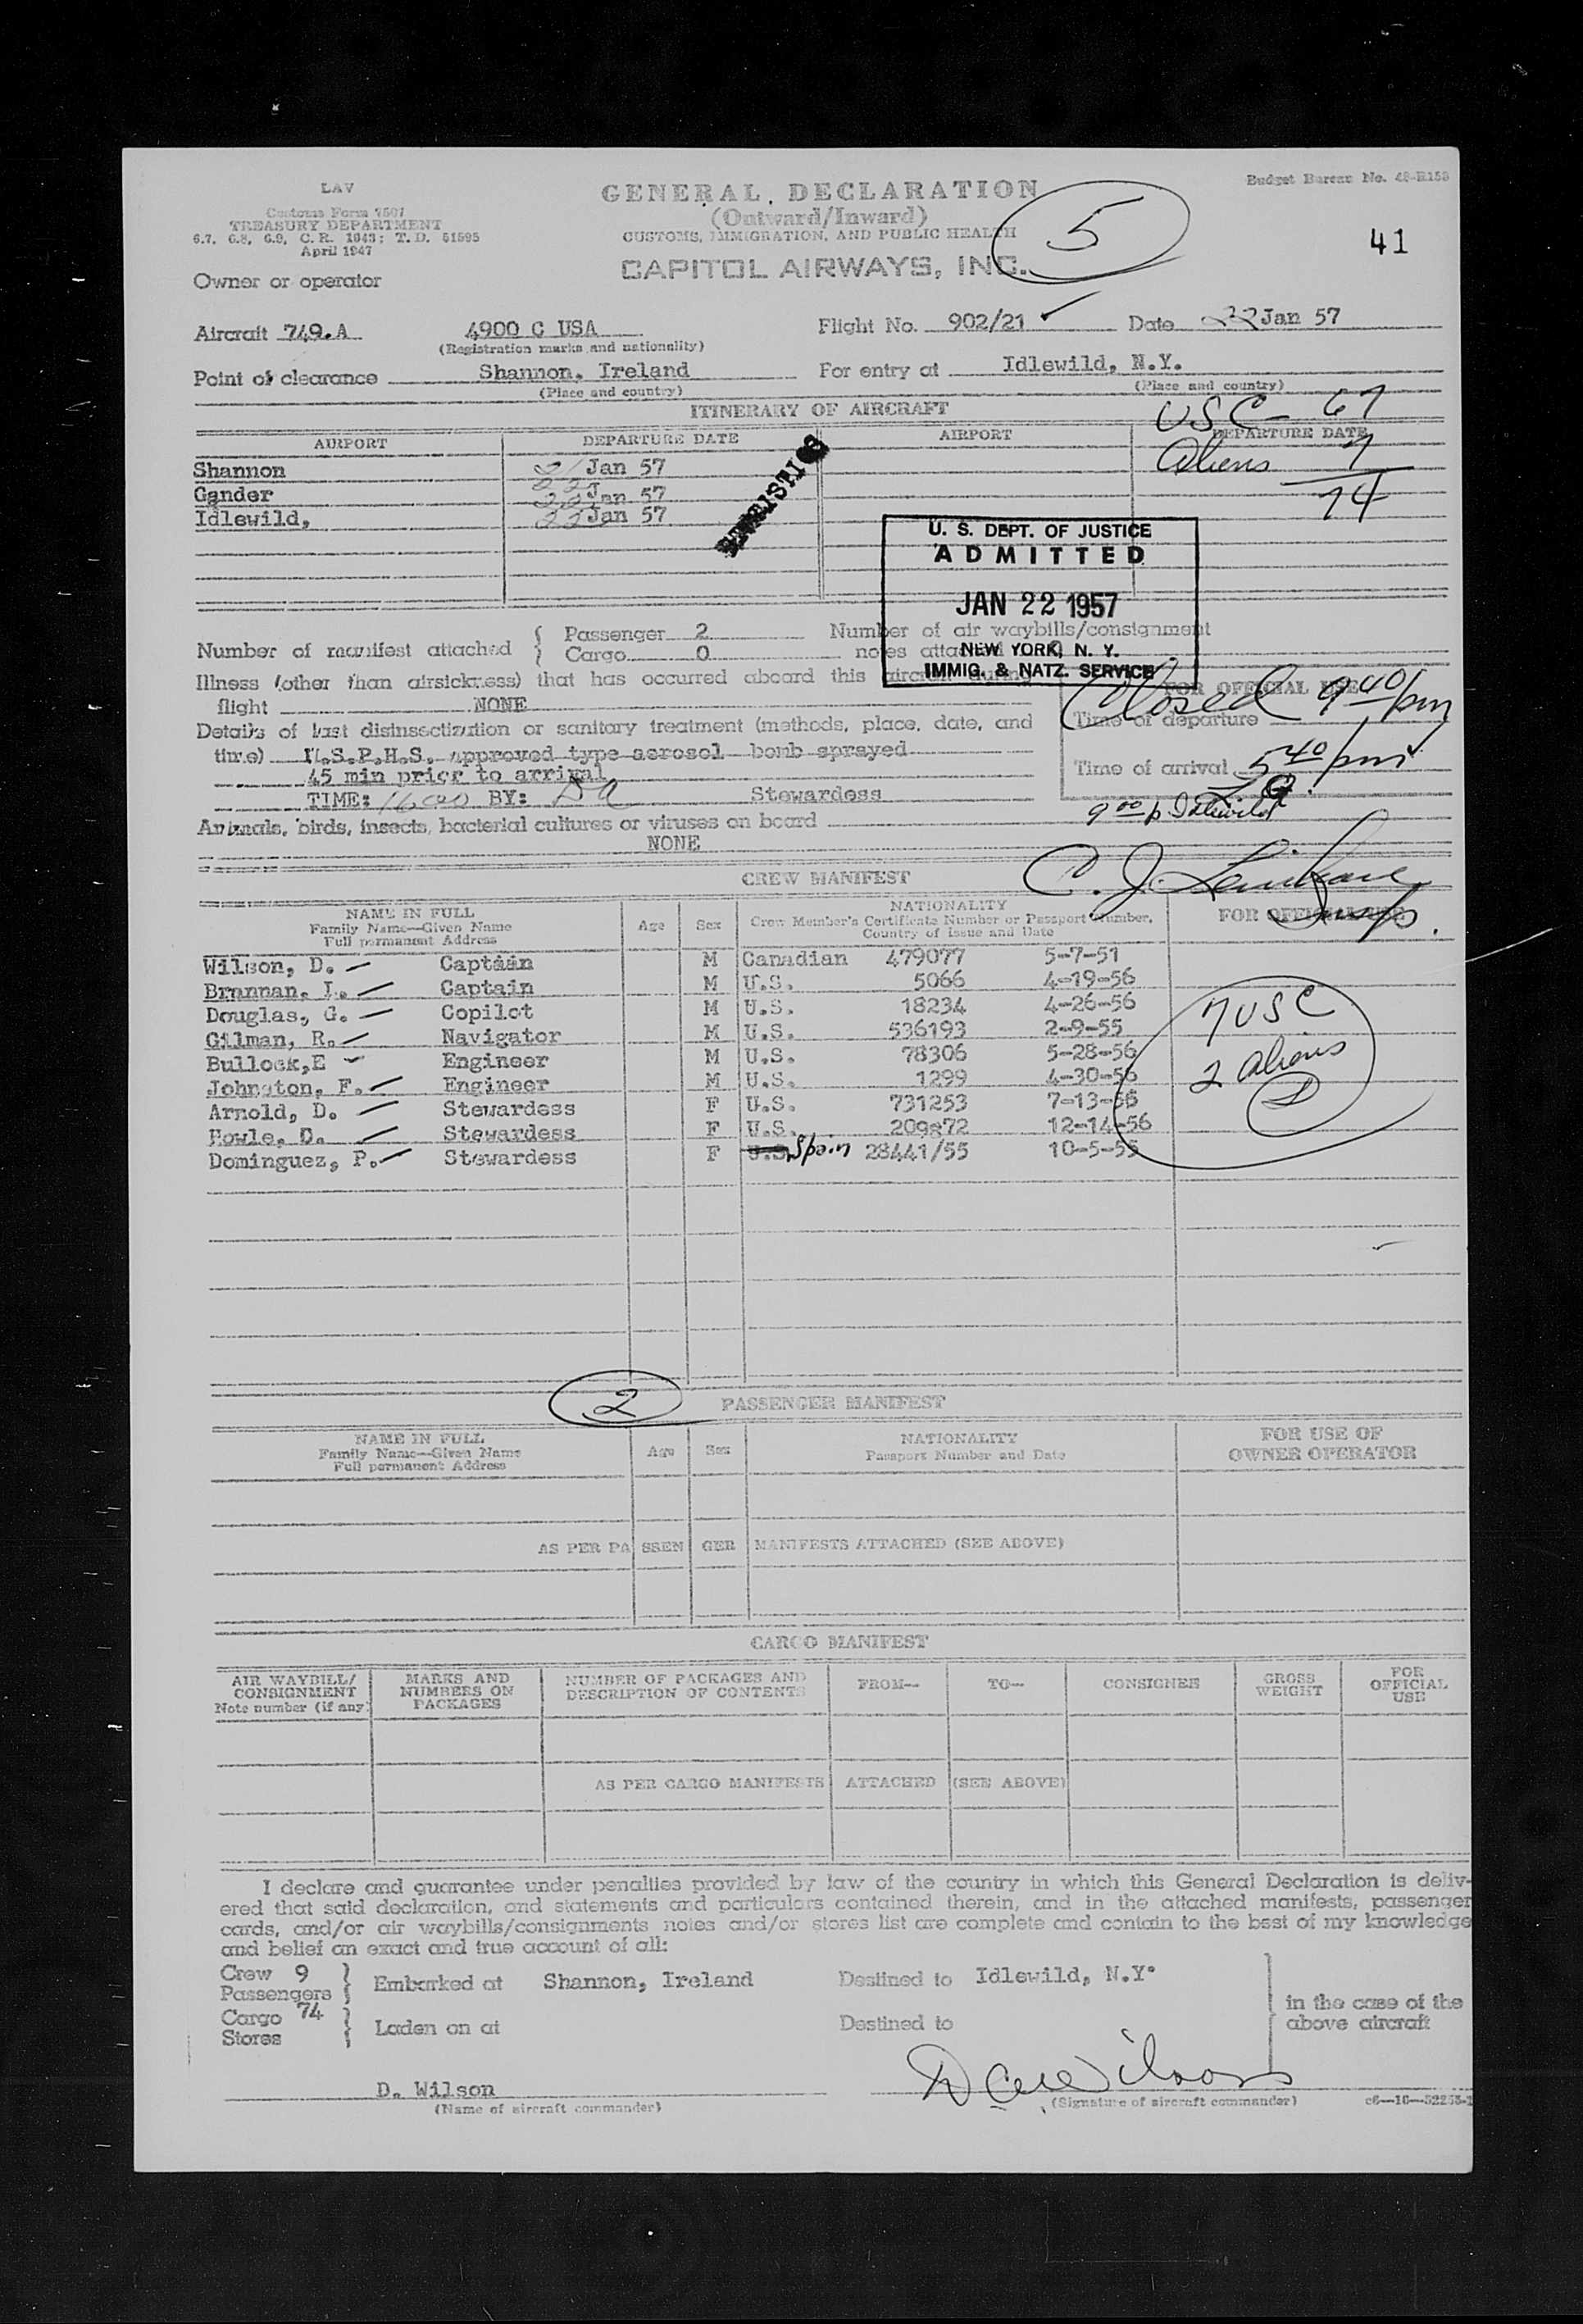 LAV
Customs Form 7507
TREASURY DEPARTMENT
6.7, 6.8, 6.9, C. R. 1943; T. D. 51595
April 1947
GENERAL DECLARATION
(Outward/Inward)
CUSTOMS, IMMIGRATION, AND PUBLIC HEALTH
CAPITOL AIRWAYS, INC.
5
Budget Bureau No. 48-R153
41
Owner or operator
Aircraft 749.A 4900 C USA Flight No. 902/21 Date 22 Jan 57
(Registration marks and nationality)
Point of clearance Shannon, Ireland For entry at Idlewild, N.Y.
(Place and country) (Place and country)
ITINERARY OF AIRCRAFT
USC - 67
AIRPORT DEPARTURE DATE AIRPORT DEPARTURE DATE
Aliens 7
74
Shannon Jan 57
Gander Jan 57
Idlewild, 22 Jan 57
U. S. DEPT. OF JUSTICE
ADMITTED
JAN 22 1957
NEW YORK, N. Y.
IMMIG. & NATZ. SERVICE
Number of manifest attached { Passenger 2 Number of air waybills/consignment
Cargo 0 notes attached
Illness (other than airsickness) that has occurred aboard this aircraft during
flight NONE
FOR OFFICIAL USE
Closed 9 40/pm
Details of last disinsectization or sanitary treatment (methods, place, date, and
time) U.S.P.H.S. approved type aerosol bomb sprayed
45 min prior to arrival
TIME: 1600 BY: DA Stewardess
Time of departure
Time of arrival 5 40/pm
9 00 p Idlewild
Animals, birds, insects, bacterial cultures or viruses on board
NONE
CREW MANIFEST
C. J.
NAME IN FULL
Family Name—Given Name
Full permanent Address
Age Sex
NATIONALITY
Crew Member's Certificate Number or Passport Number,
Country of Issue and Date
FOR OFFICIAL USE
Wilson, D. Captain M Canadian 479077 5-7-51
Brannan, L. Captain M U.S. 5066 4-19-56
Douglas, G. Copilot M U.S. 18234 4-26-56
Gilman, R. Navigator M U.S. 536193 2-9-55
Bullock,E Engineer M U.S. 78306 5-28-56
Johnston, F. Engineer M U.S. 1299 4-30-56
Arnold, D. Stewardess F U.S. 731253 7-13-56
Howle, D. Stewardess F U.S. 209872 12-14-56
Dominguez, P. Stewardess F U.S. Spain 28441/55 10-5-55
7 USC
2 Aliens
2
PASSENGER MANIFEST
NAME IN FULL
Family Name—Given Name
Full permanent Address
Age Sex
NATIONALITY
Passport Number and Date
FOR USE OF
OWNER OPERATOR
AS PER PASSENGER MANIFESTS ATTACHED (SEE ABOVE)
CARGO MANIFEST
AIR WAYBILL/
CONSIGNMENT
Note number (if any)
MARKS AND
NUMBERS ON
PACKAGES
NUMBER OF PACKAGES AND
DESCRIPTION OF CONTENTS
FROM— TO— CONSIGNEE
GROSS
WEIGHT
FOR
OFFICIAL
USE
AS PER CARGO MANIFESTS ATTACHED (SEE ABOVE)
I declare and guarantee under penalties provided by law of the country in which this General Declaration is deliv-
ered that said declaration, and statements and particulars contained therein, and in the attached manifests, passenger
cards, and/or air waybills/consignments notes and/or stores list are complete and contain to the best of my knowledge
and belief an exact and true account of all:
Crew 9
Passengers } Embarked at Shannon, Ireland Destined to Idlewild, N.Y.
Cargo 74
Stores } Laden on at Destined to
in the case of the
above aircraft
D. Wilson
(Name of aircraft commander) (Signature of aircraft commander)